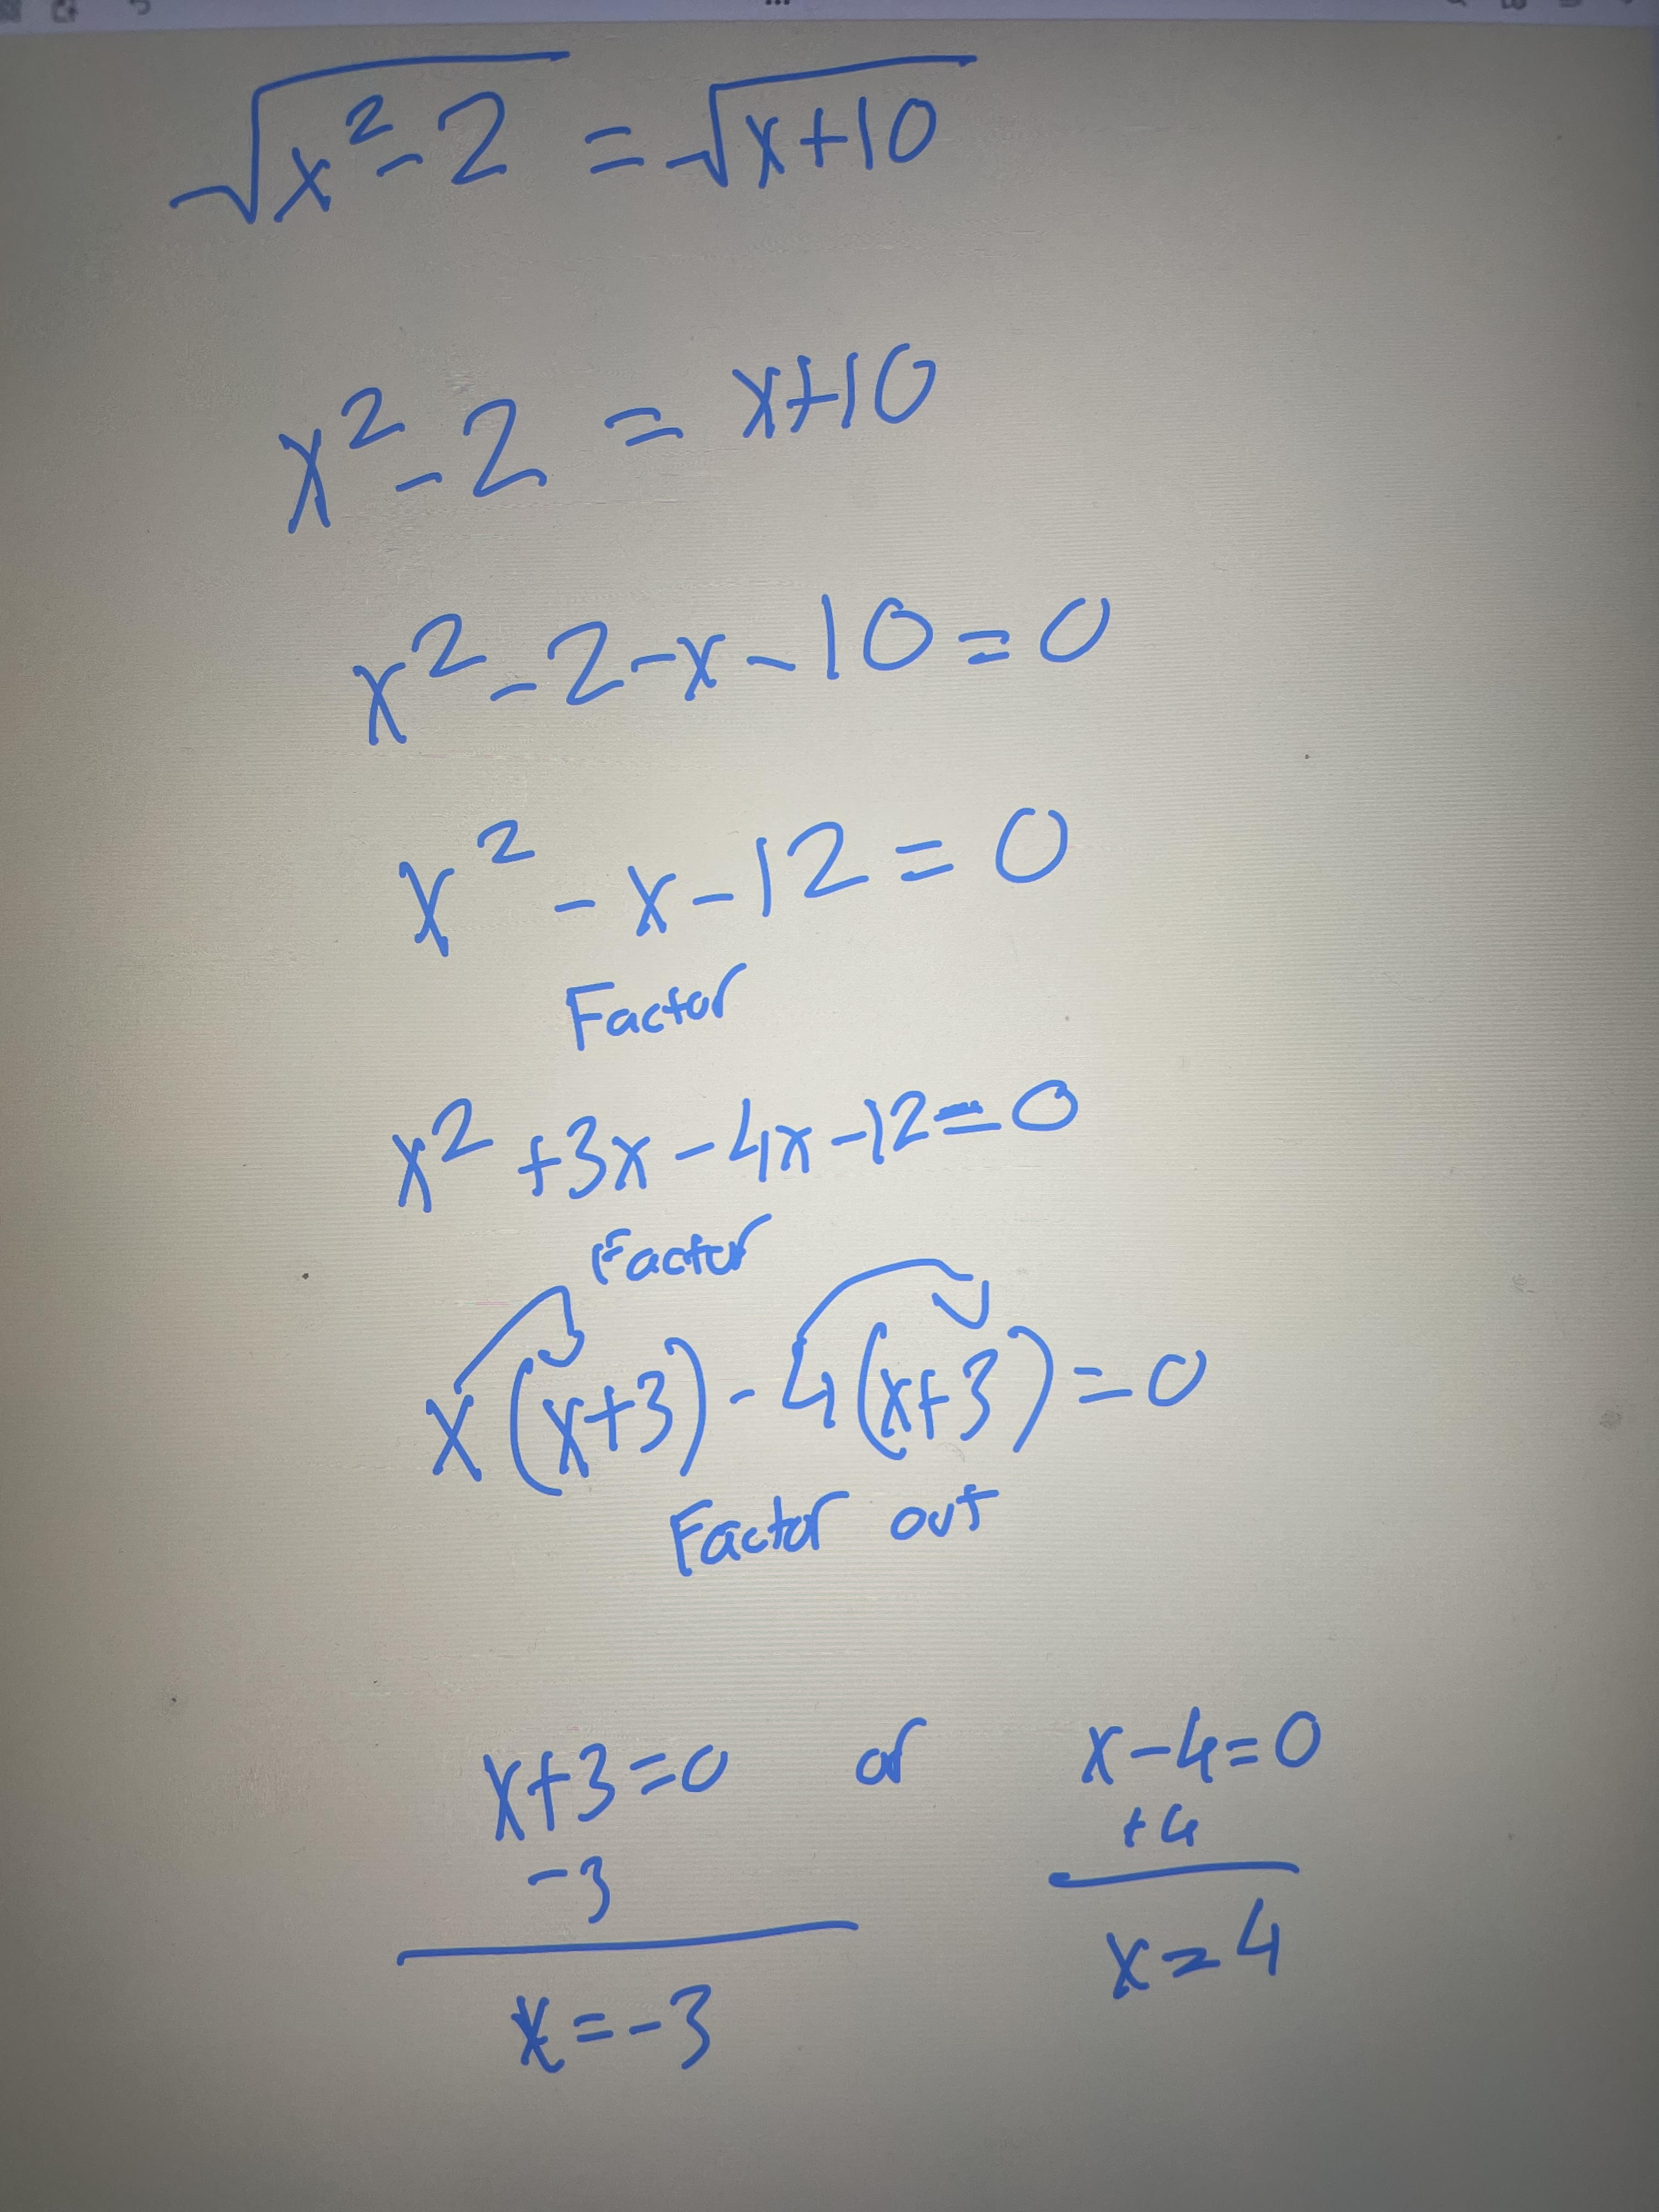 √(x²-2) = √(x+10)
x²-2 = x+10
x²-2-x-10=0
x²-x-12=0
Factor
x²+3x-4x-12=0
Factor
x(x+3)-4(x+3)=0
Factor out
x+3=0 or x-4=0
-3 +4
x=-3 x=4